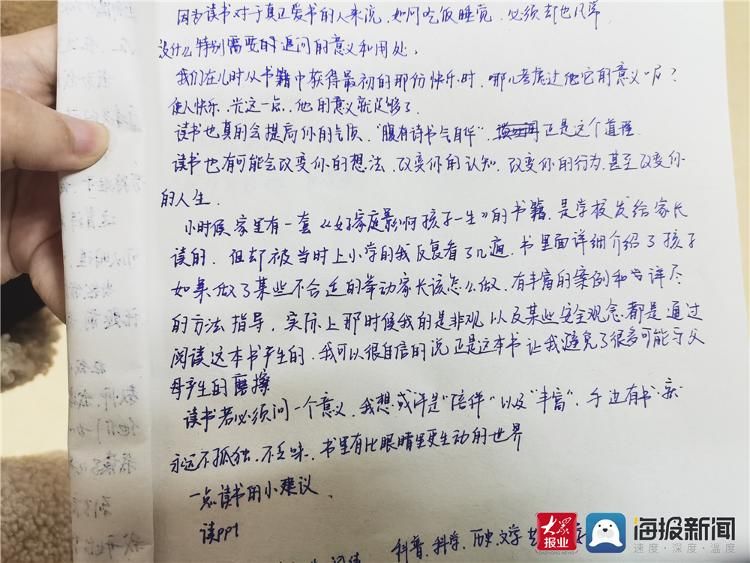 因为读书对于真正爱书的人来说,如同吃饭睡觉,必须却也只常
没什么特别需要的追问的意义和用处。
我们在儿时从书籍中获得最初的那份快乐时,哪儿考虑过他它的意义一后?
使人快乐,光这一点,他的意义就足够了.
读书也真的会提高你的气质,"腹有诗书气自华",正是这个道理.
读书也有可能会改变你的想法、改变你的认知、改变你的行为、甚至改变你
的人生.
小时候,家里有一套《好家庭影响孩子一生》的书籍,是学校发给家长
读的,但却被当时上小学的我反复看了几遍,书里面详细介绍了孩子
如果做了某些不合适的举动家长该怎么做,有丰富的案例和详尽
的方法指导,实际上那时候我的是非观以及某些安全观念都是通过
阅读这本书产生的,我可以很自信的说正是这本书让我避免了很多可能与父
母产生的磨擦
读书若必须问一个意义,我想或许是"陪伴"以及"丰富",手边有书
永远不孤独、不乏味,书里有比眼睛里更生动的世界
一点读书的小建议.
读ppt
科普、科学、历史、文学
大众报业
DAZHONG NEWS
海报新闻
速度·深度·温度